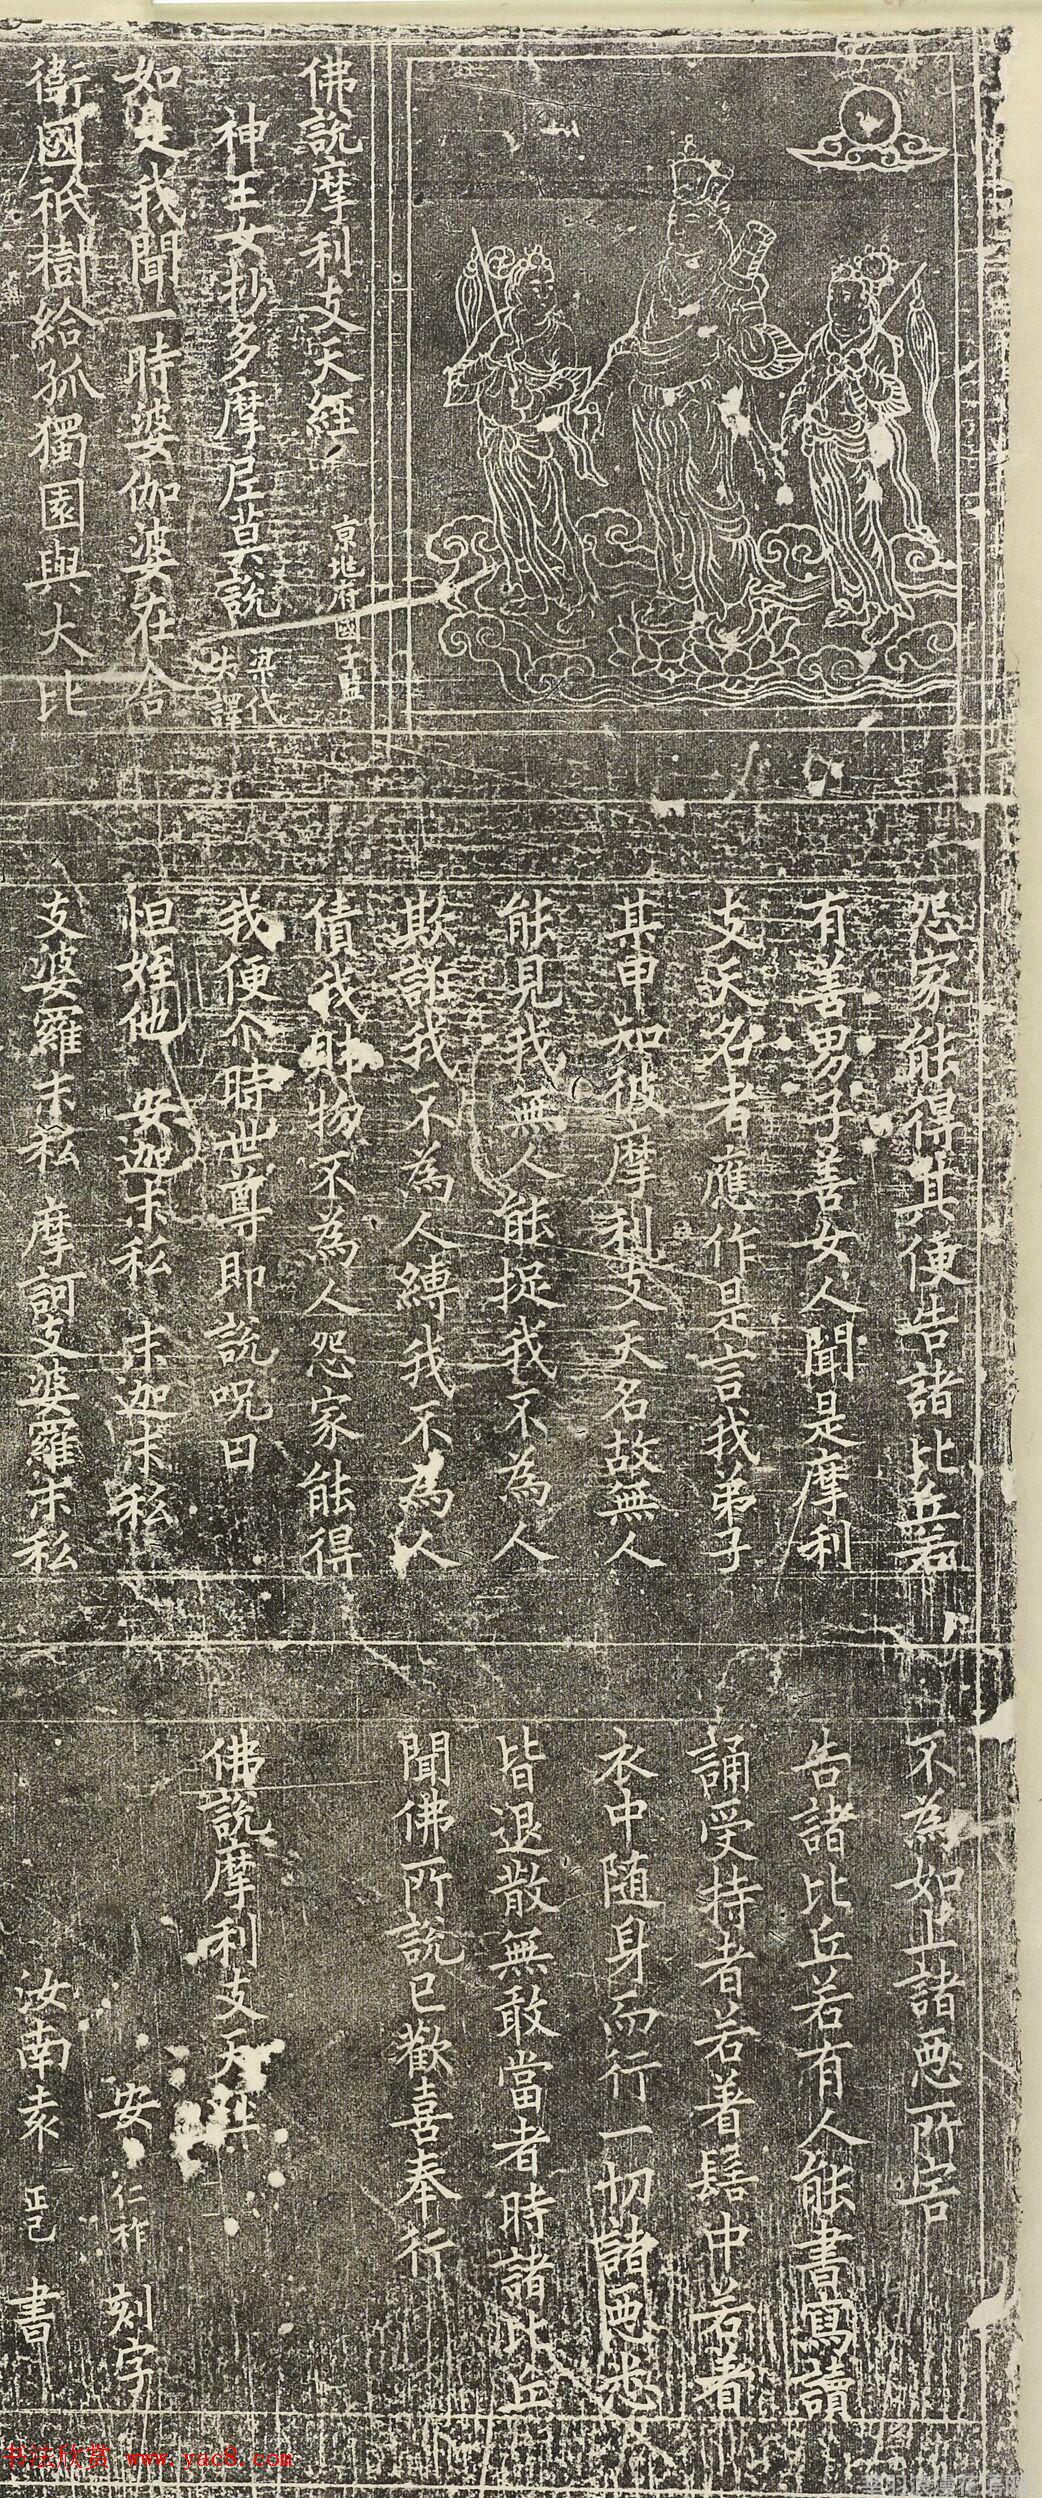 佛說摩利支天經
京兆府國子監
神王女抄多摩尼莫說
梁代
失譯
如是我聞一時婆伽婆在舍
衛國祇樹給孤獨園與大比
怨家能得其便告諸比丘若
有善男子善女人聞是摩利
支天名者應作是言我弟子
某甲知彼摩利支天名故無人
能見我無人能捉我不為人
欺誑我不為人縛我不為人
債我財物不為人怨家能得
我便尒時世尊即說呪曰
怛姪他 安迦末私 末迦末私
支婆羅末私 摩訶支婆羅末私
不為如上諸惡所害
告諸比丘若有人能書寫讀
誦受持者若著髻中若著
衣中隨身而行一切諸惡悉
皆退散無敢當者時諸比丘
聞佛所說已歡喜奉行
佛說摩利支天經
安 仁祚 刻字
汝南袁 正己 書
书法欣赏 www.yac8.com